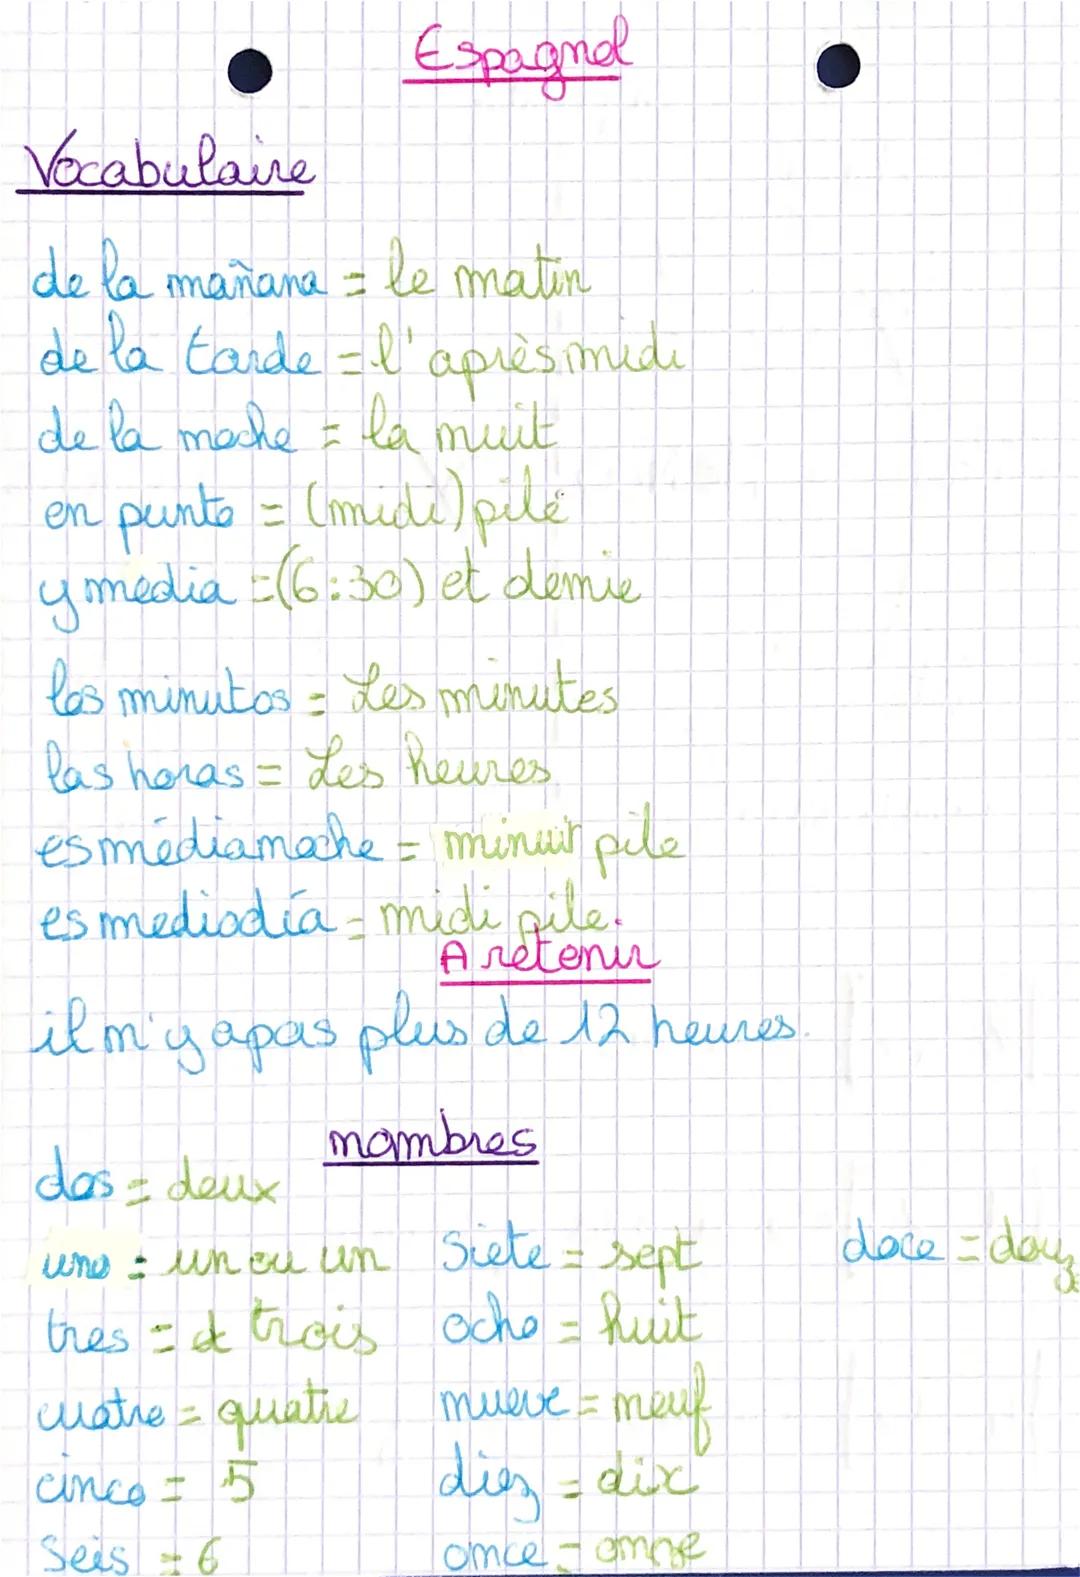 Espagnol
Vocabulaire
de la mañana = le matin
de la tarde = l'après midi
de la noche = la nuit
en punto = (midi) pile
y media = (6:30) et demie
los minutos = Les minutes
las horas = Les heures
es médianoche = minuit pile
es mediodía = midi pile.
A retenir
il n'y a pas plus de 12 heures.
nombres
dos = deux
uno = un ou un
tres = d trois
cuatre = quatre
cinco = 5
Seis = 6
Siete = sept
ocho = huit
nueve = neuf
diez = dix
once = onze
doce = douz